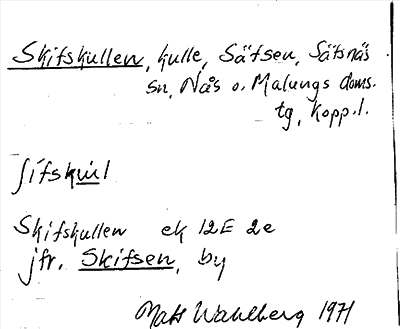 Skifskullen, kulle, Säfsen, Säfsnäs
sn, Nås o. Malungs doms.
tg, Kopp. l.
ʃifskul
Skifskullen ek 12E 2e
jfr. Skifsen, by
Mats Wahlberg 1971